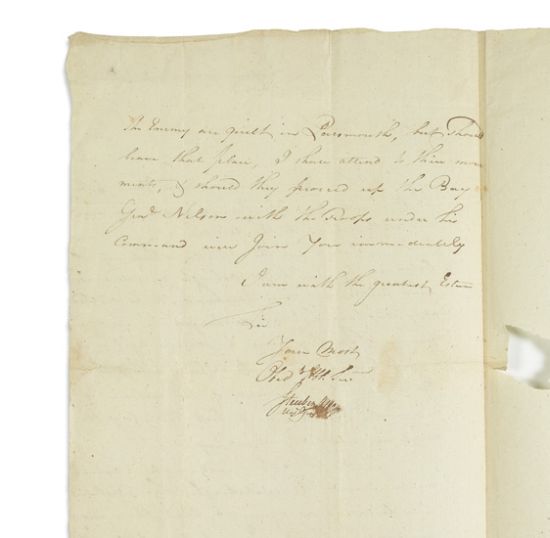 The Enemy are quiett in Portsmouth, but Should
leave that place, I shall attend to their move
ments, & should they proceed up the Bay
Genl Nelson with the Troops under his
Command will Join You immediately
I am with the greatest Esteem
Sir
Your Most
Obed Hbl Sert
Steuben
Maj Gen